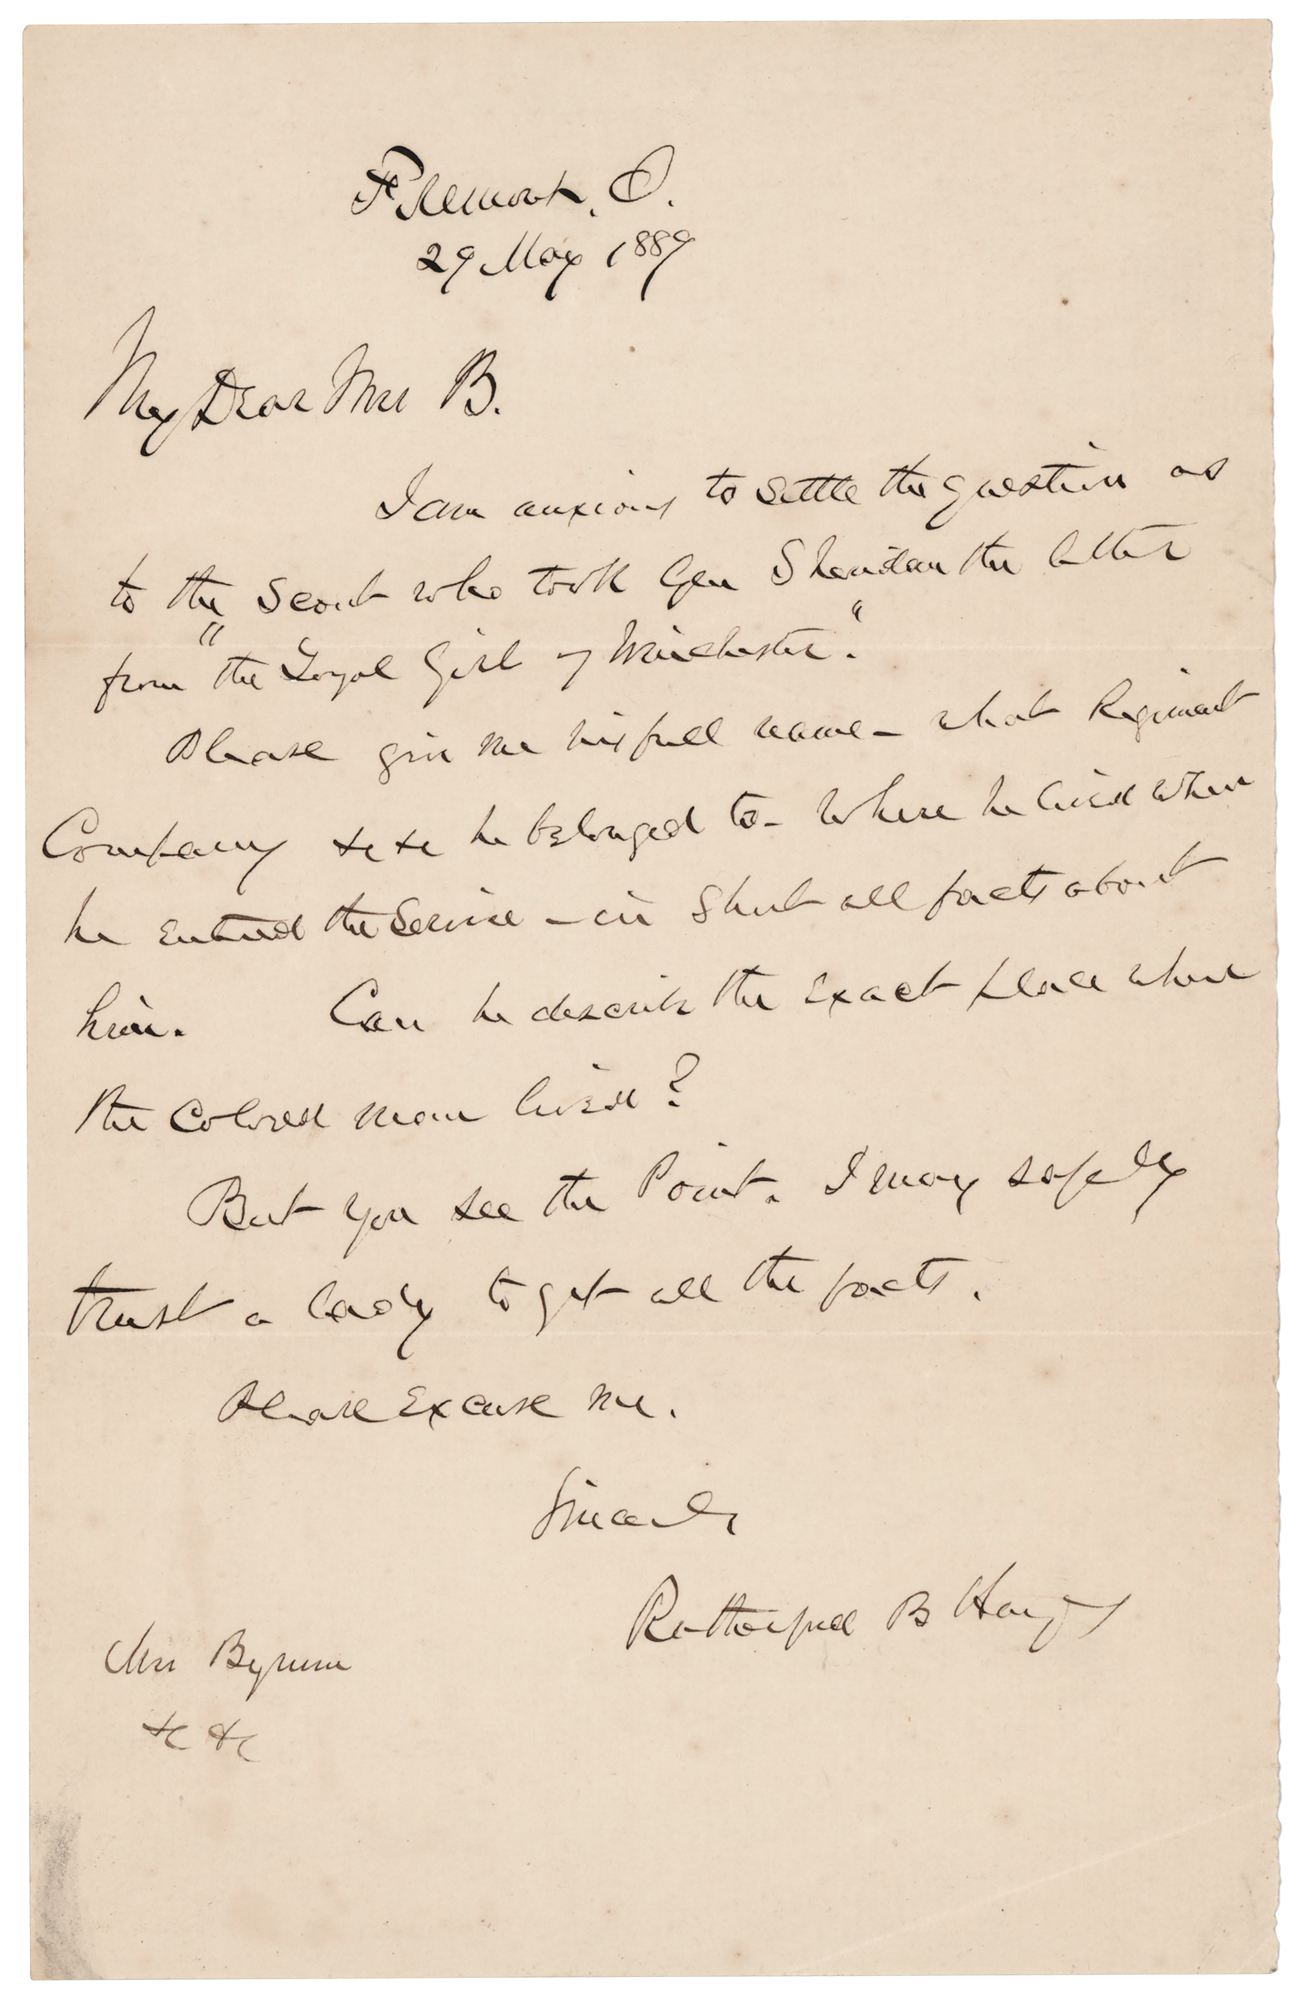 Fremont, O.
29 May 1889
My Dear Mrs B.
I am anxious to settle the question as
to the Scout who took Gen Sheridan the letter
from "the Loyal Girl of Winchester."
Please give me his full name - what Regiment
Company &c &c he belonged to - Where he lived when
he entered the Service - in short all facts about
him. Can he describe the exact place where
the Colored man lived?
But you see the Point. I may safely
trust a lady to get all the facts.
Please Excuse me.
Sincerely
Rutherford B Hayes
Mrs Bynum
&c &c